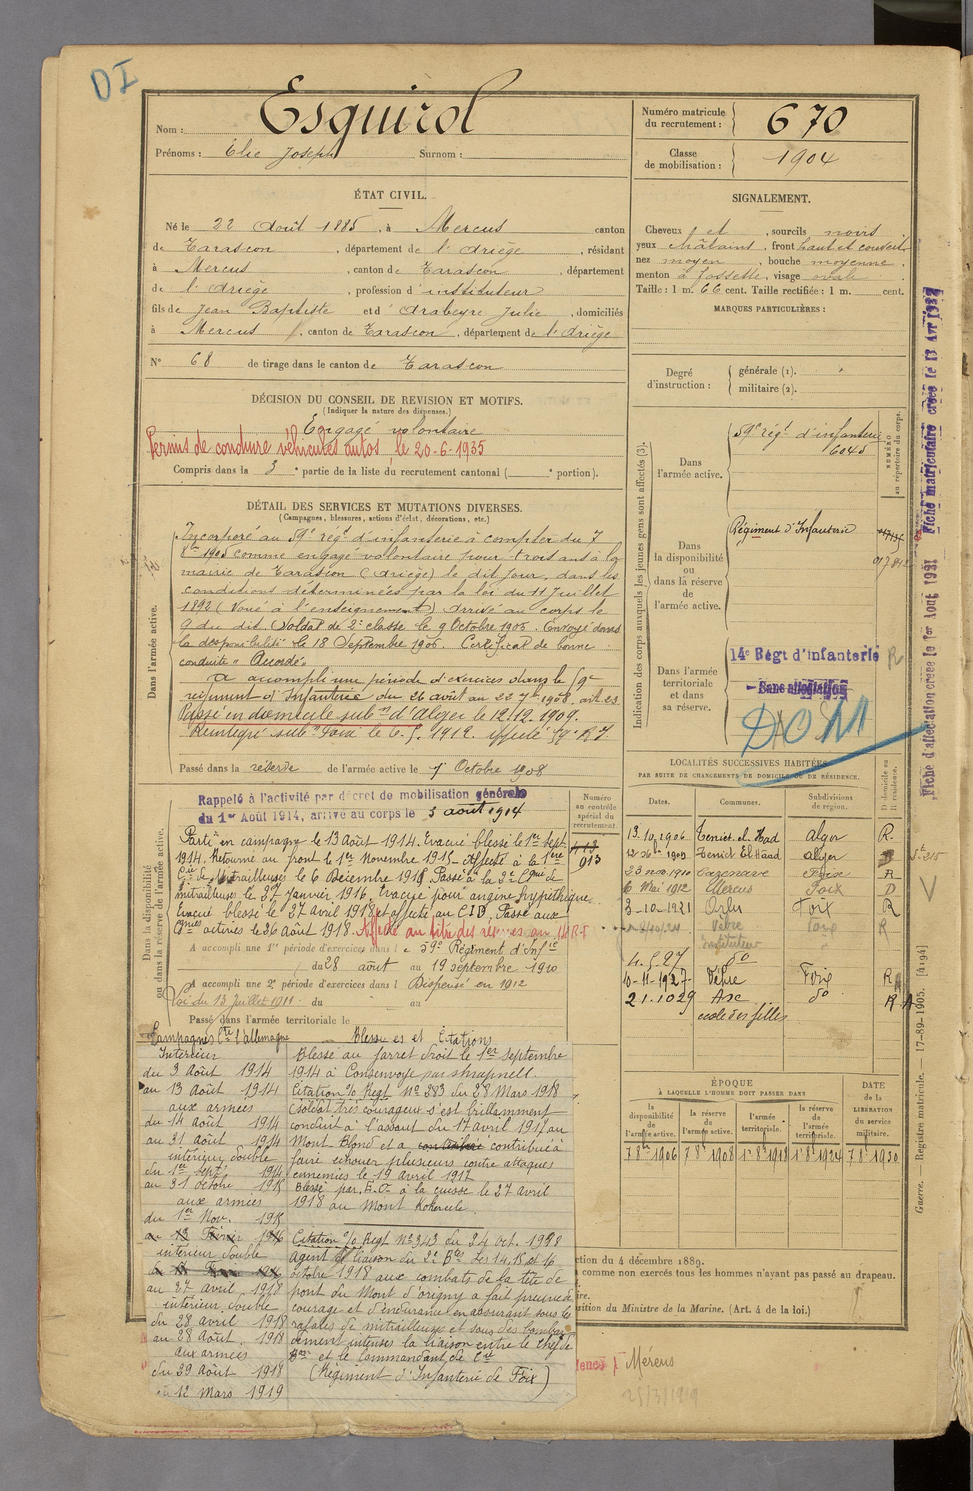 DI
Nom : Esquirol
Prénoms : Elie Joseph Surnom :
Numéro matricule du recrutement : 670
Classe de mobilisation : 1904
ÉTAT CIVIL.
Né le 22 Août 1885, à Mercus canton
de Tarascon, département de l'Ariège, résidant
à Mercus, canton de Tarascon, département
de l'Ariège, profession d'instituteur
fils de Jean Baptiste et d'Arabeyre Julie, domiciliés
à Mercus, canton de Tarascon, département de l'Ariège
N° 68 de tirage dans le canton de Tarascon
SIGNALEMENT.
Cheveux et, sourcils noirs
yeux châtains, front haut et
nez moyen, bouche moyenne.
menton à fossette, visage ovale
Taille : 1 m. 66 cent. Taille rectifiée : 1 m. cent.
MARQUES PARTICULIÈRES :
Degré d'instruction : générale (1).
militaire (2).
DÉCISION DU CONSEIL DE REVISION ET MOTIFS.
(Indiquer la nature des dispenses.)
Engagé volontaire
Permis de conduire véhicules autos, le 20-6-1935
Compris dans la 3e partie de la liste du recrutement cantonal ( e portion).
DÉTAIL DES SERVICES ET MUTATIONS DIVERSES.
(Campagnes, blessures, actions d'éclat, décorations, etc.)
Dans l'armée active.
Incorporé au 59e régt d'infanterie à compter du 7
8bre 1905 comme engagé volontaire pour trois ans à la
mairie de Tarascon (Ariège) le dit jour, dans les
conditions déterminées par la loi du 11 Juillet
1892 (Voué à l'enseignement) arrivé au corps le
9 du dit. Soldat de 2e classe le 9 Octobre 1905. Envoyé dans
la disponibilité le 18 Septembre 1906. Certificat de bonne
conduite "Accordé"
A accompli une période d'exercices dans le 59e
régiment d'Infanterie du 26 août au 22 7bre 1908, art. 23
Passé en domicile subon d'Alger le 12.12.1909.
Réintégré subon Foix le 6.5.1912. affecté 59e R.I.
Passé dans la réserve de l'armée active le 7 Octobre 1908
Indication des corps auxquels les jeunes gens sont affectés (3).
Dans l'armée active. 59e régt d'infanterie
6045
NUMÉRO au répertoire du corps.
Dans la disponibilité ou dans la réserve de l'armée active.
Régiment d'Infanterie
Dans l'armée territoriale et dans sa réserve.
14e Régt d'infanterie R
Sans affectation
DOM
Fiche d'affectation créée le 1er Août 1931 Fiche matriculaire créée le 13 Avr 1937
Dans la disponibilité ou dans la réserve de l'armée active.
Rappelé à l'activité par décret de mobilisation générale
du 1er Août 1914, arrivé au corps le 3 août 1914
Numéro au contrôle spécial du recrutement
913
Parti en campagne le 13 Août 1914. Evacué blessé le 1er Sept.
1914. Retourné au front le 1er Novembre 1915. Affecté à la 1ère
Cie de Mitrailleuses le 6 Décembre 1915. Passé à la 3e Cgnie de
mitrailleuse le 27 Janvier 1916. Evacué pour angine
Evacué blessé le 27 Avril 1918 et affecté au CID. Passé aux
Cgnies actives le 26 Août 1918. Affecté au titre des réserves au 14 R.I
A accompli une 1re période d'exercices dans le 59e Régiment d'Infie
du 28 août au 19 septembre 1910
A accompli une 2e période d'exercices dans l Dispensé en 1912
Loi du 13 Juillet 1911 du au
Passé dans l'armée territoriale le
LOCALITÉS SUCCESSIVES HABITÉES
PAR SUITE DE CHANGEMENTS DE DOMICILE OU DE RÉSIDENCE.
Dates. Communes. Subdivisions de région. D domicile ou R résidence.
13.10.1906 Teniet-el-Haad Alger R.
12 Xbre 1909 Teniet El Haad Alger D
23 nov 1910 Cazenave Foix R
6 Mai 1912 Mercus Foix D
3-10-1921 Orlu Foix R
Vèbre Foix R
instituteur
4.5.27 do
10-11-1927 Vèbre Foix R
21.1029 Axe do R
école des filles
ÉPOQUE
À LAQUELLE L'HOMME DOIT PASSER DANS
DATE de la LIBÉRATION du service militaire.
la disponibilité de l'armée active. la réserve de l'armée active. l'armée territoriale. la réserve de l'armée territoriale.
7 8bre 1906 7 8bre 1908 1er 8bre 1918 1er 8bre 1924 7 8bre 1930
Campagnes Cte l'Allemagne
Intérieur
du 3 Août 1914
au 13 Août 1914
aux armées
du 14 Août 1914
au 31 Août 1914
intérieur double
du 1er Sept. 1914
au 31 octobre 1915
aux armées
du 1er Nov. 1915
au 13 Février 1916
intérieur double
au 27 avril 1918
intérieur double
du 28 avril 1918
au 28 Août 1918
aux armées
du 29 Août 1918
au 12 Mars 1919
Blessures et Citations
Blessé au jarret droit le 1er Septembre
1914 à Consenvoye par shrapnell.
Citation O/ Regt N° 283 du 28 Mars 1918
(soldat très courageux s'est brillamment
conduit à l'assaut du 17 avril 1917 au
Mont Blond et a contribué à
faire échouer plusieurs contre attaques
ennemies le 19 avril 1917
Blessé par E.O. à la cuisse le 27 avril
1918 au Mont Kokerule.
Citation O/ Regt N° 343 du 24 Oct. 1918
Agent de liaison du 2e Bon les 14, 15 et 16
octobre 1918 aux combats de la tête de
pont du Mont d'origny a fait preuve de
courage et d'endurance en assurant sous les
rafales de mitrailleuses et sous des bombar
dement intenses la liaison entre le chef de
Bon et le Commandant de Cie
(Régiment d'Infanterie de Foix)
ction du 4 décembre 1889.
comme non exercés tous les hommes n'ayant pas passé au drapeau.
ire.
sition du Ministre de la Marine. (Art. 4 de la loi.)
Mércus
25/3/1919
Guerre. — Registre matricule. — 17-89-1905. [4194]